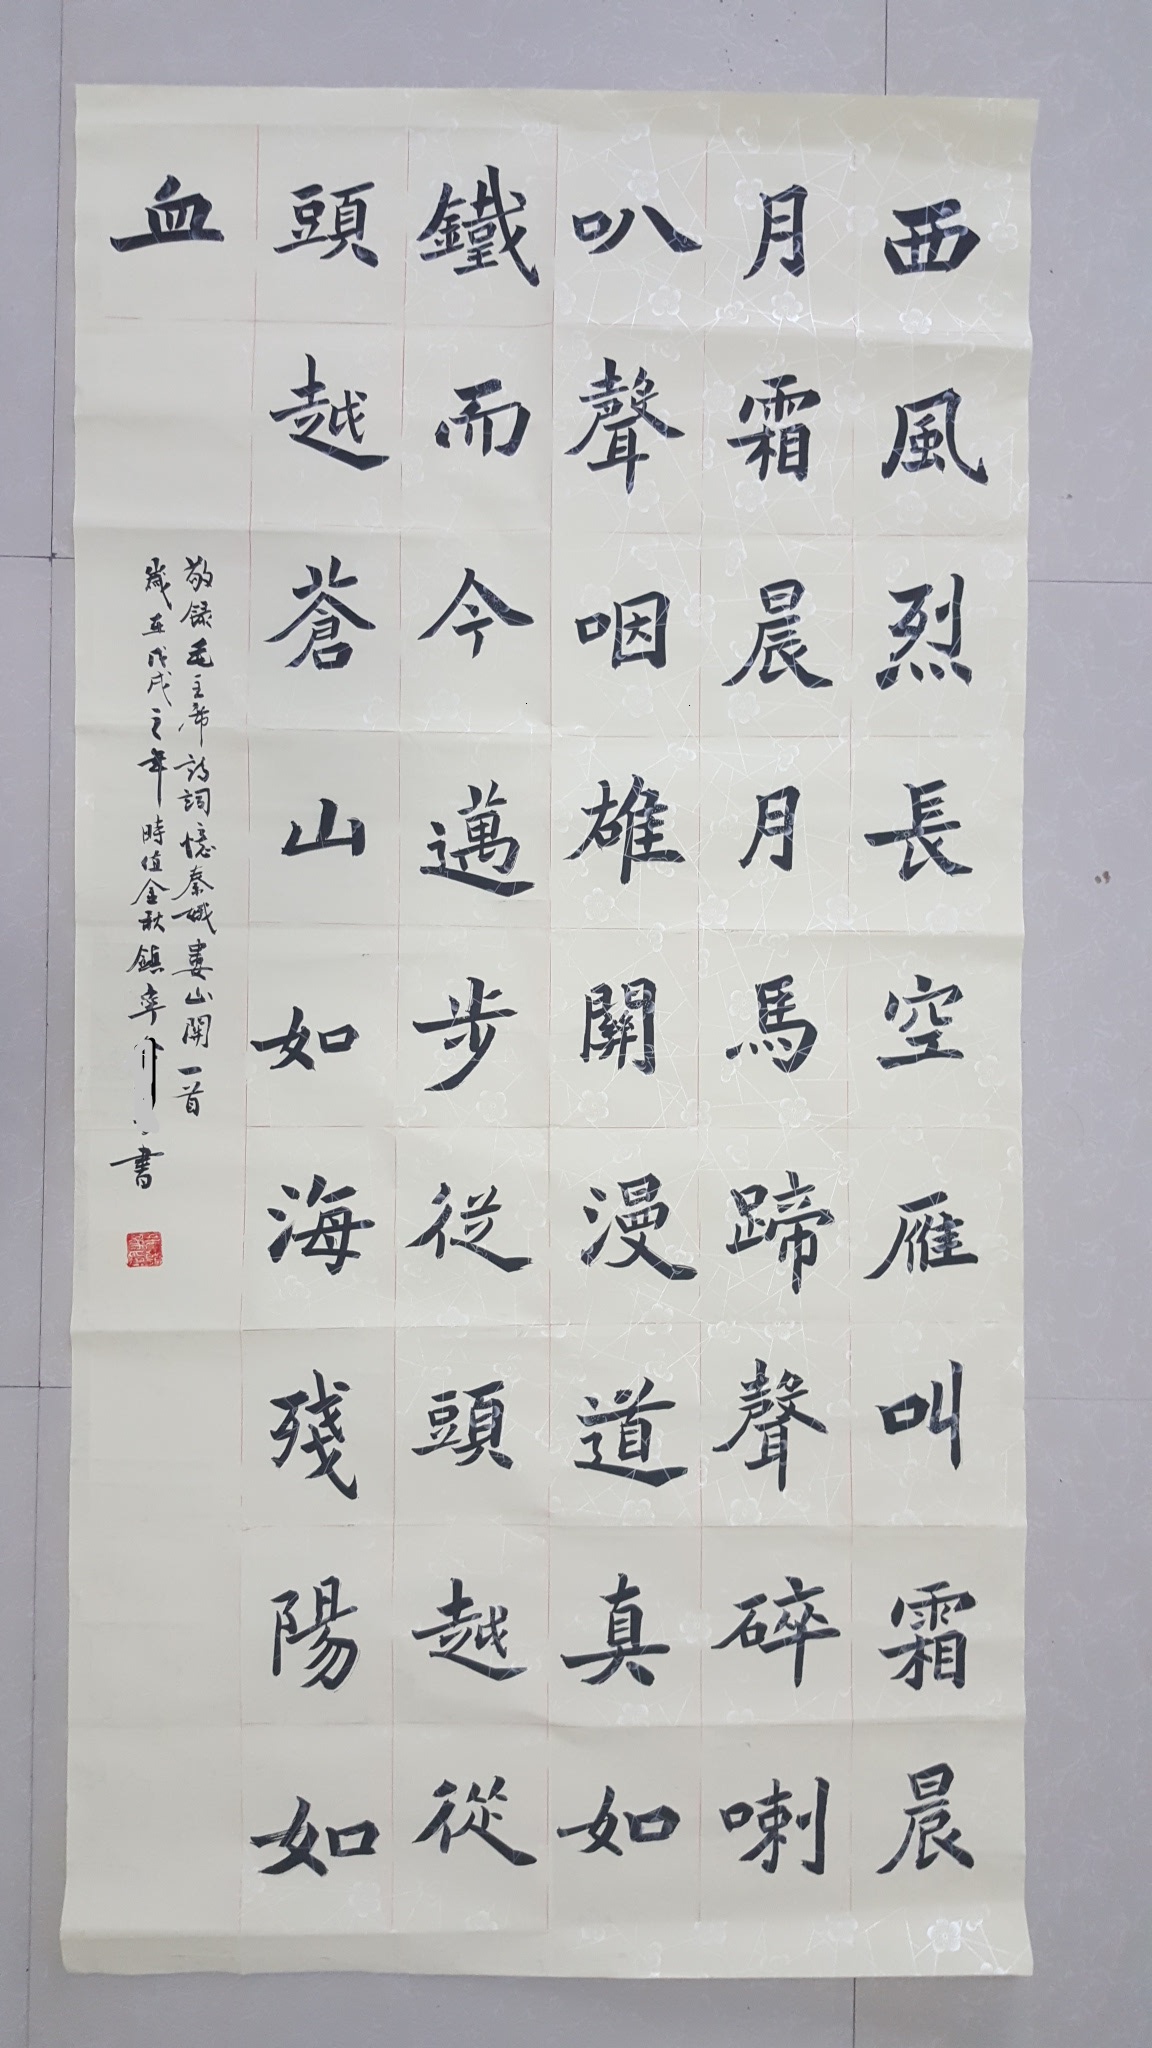 西風烈長空雁叫霜晨
月霜晨月馬蹄聲碎喇
叭聲咽雄關漫道真如
鐵而今邁步從頭越從
頭越蒼山如海殘陽如
血
敬録毛主席詩詞憶秦娥婁山關一首
歲在戊戌之年時值金秋鎮寧書